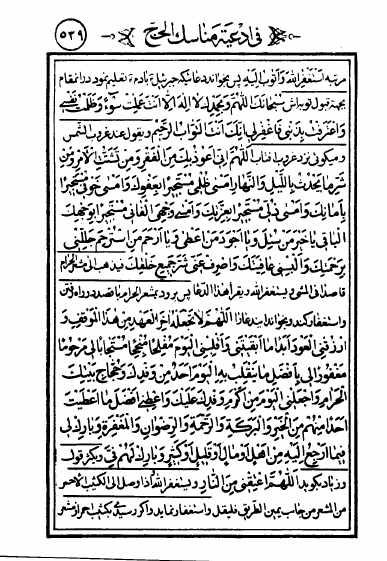 في ادعية مناسك الحج
٥٣٩
مرتبه استغفر الله واتوب اليه پس بخواند دعائيكه جبرئيل بآدم تعليم نمود در انمقام
بجهة قبول توبه اش سبحانك اللهم وبحمدك لا اله الا انت عملت سوءا وظلمت نفسي
واعترفت بذنبي فاغفر لي انك انت التواب الرحيم ويقول عند غروب الشمس
وميكوئى نزد غروب افتاب اللهم اني اعوذ بك من الفقر ومن تشتت الامر ومن
شر ما يحدث بالليل والنهار امسى ظلمي مستجيرا بعفوك وامسى خوفي مستجيرا
بامانك وامسى ذلي مستجيرا بعزك وامسى وجهي الفاني مستجيرا بوجهك
الباقي يا خير من سئل ويا اجود من اعطى ويا ارحم من استرحم جللني
برحمتك والبسني عافيتك واصرف عني شر جميع خلقك فيذهب الى مشعر الحرام
قاصدا في المشي ويستغفر الله ويقرء هذا الدعا پس برود بمشعر الحرام با قصد در راه رفتن
واستغفار كند وبخواند ايندعا را اللهم لا تجعله اخر العهد من هذا الموقف و
ارزقني العود ابدا ما ابقيتني واقلبني اليوم مفلحا منجحا مستجابا لي مرحوما
مغفورا لي بافضل ما ينقلب به اليوم احد من وفدك وحجاج بيتك
الحرام واجعلني اليوم من اكرم وفدك عليك واعطني افضل ما اعطيت
احدا منهم من الخير والبركة والرحمة والرضوان والمغفرة وبارك لي
فيما ارجع اليه من اهل او مال او قليل او كثير وبارك لهم في ويكرر قول
وزياد بگويد اللهم اعتقني من النار ويستغفر الله اذا وصل الى الكثيب الاحمر
من المشعر من جانب يمين الطريق فليقل واستغفار نمايد واگر رسيدى بكثيب احمر از مشعر